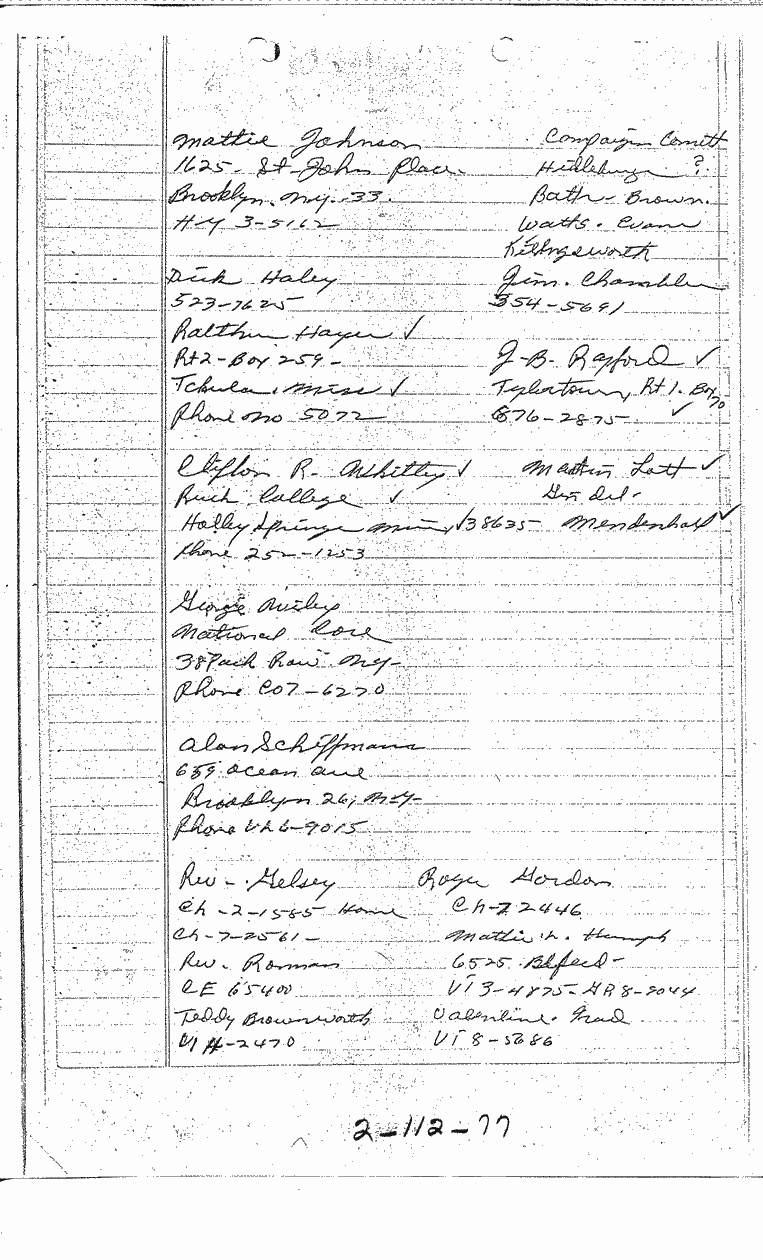 Mattie Johnson
1625 - St-John Place.
Brooklyn. N.Y. 33.
H-Y 3-5162
Dick Haley
523-7625
Ralthus Hayes ✓
Rt 2 - Box 259 -
Tchula, Miss ✓
Phone No 5072
Clifton R. Whitley ✓
Rush College ✓
Holley Springs Miss, ✓ 38635 -
Phone 252-1253
George
National Core
38 Park Row N.Y -
Phone CO7-6270
Alan Schiffmann
659 Ocean Ave
Brooklyn 26, N-Y-
Phone UL6-9015
Rev -. Gelsey
Ch - 2-1585 Home
Ch-7-2561 -
Rev. Roman
CE 65400
Teddy Brownworth
VI 4-2470
Campaign Comitt
?
Bath - Brown.
Watts. Evans
Killingsworth
Jim. Chamblee
354-5691
J-B. Rayford ✓
Tylertown, Rt 1. Box 70
876-2875 - ✓
Martin Lott ✓
Gen Del.
Mendenhall ✓
Roger Gordon
Ch-7 2446
Mattie H. Humph
6525
VI 3-4875 - GR 8-9044
Valentine. Grad
VI 8-5686
2-112-77